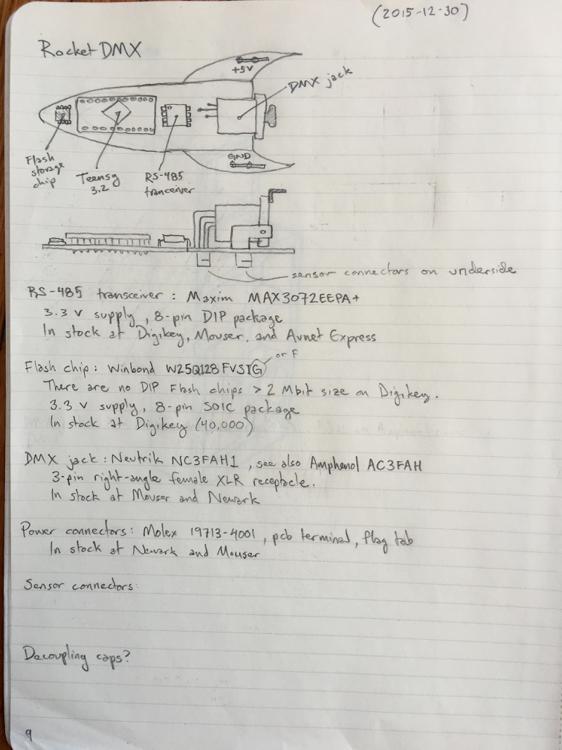 (2015-12-30)
Rocket DMX
+5V
DMX jack
GND
Flash
storage
chip
Teensy
3.2
RS-485
tranceiver
sensor connectors on underside
RS-485 transceiver : Maxim MAX3072EEPA+
3.3 v supply, 8-pin DIP package
In stock at Digikey, Mouser, and Avnet Express
or F
Flash chip: Winbond W25Q128FVSIG
There are no DIP Flash chips > 2 Mbit size on Digikey.
3.3 v supply, 8-pin SOIC package
In stock at Digikey (40,000)
DMX jack : Neutrik NC3FAH1, see also Amphenol AC3FAH
3-pin right-angle female XLR receptacle.
In stock at Mouser and Newark
Power connectors: Molex 19713-4001, pcb terminal, flag tab
In stock at Newark and Mouser
Sensor connectors:
Decoupling caps?
9